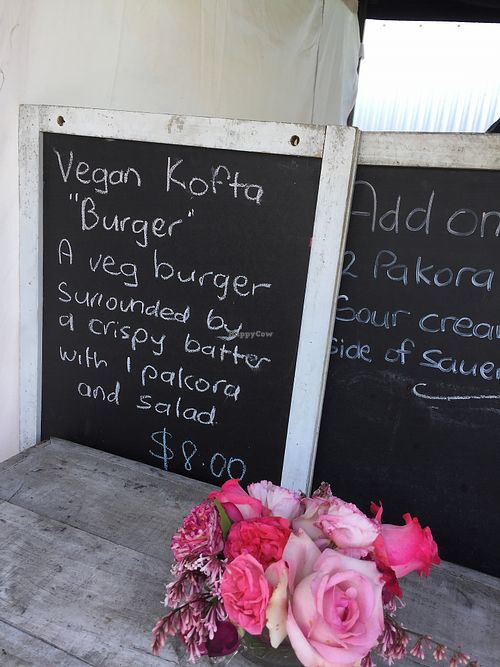 Vegan Kofta
"Burger"
A veg burger
surrounded by
a crispy batter
with 1 pakora
and salad
$8.00
Add on
2 Pakora
Sour crea
side of sauer
HappyCow